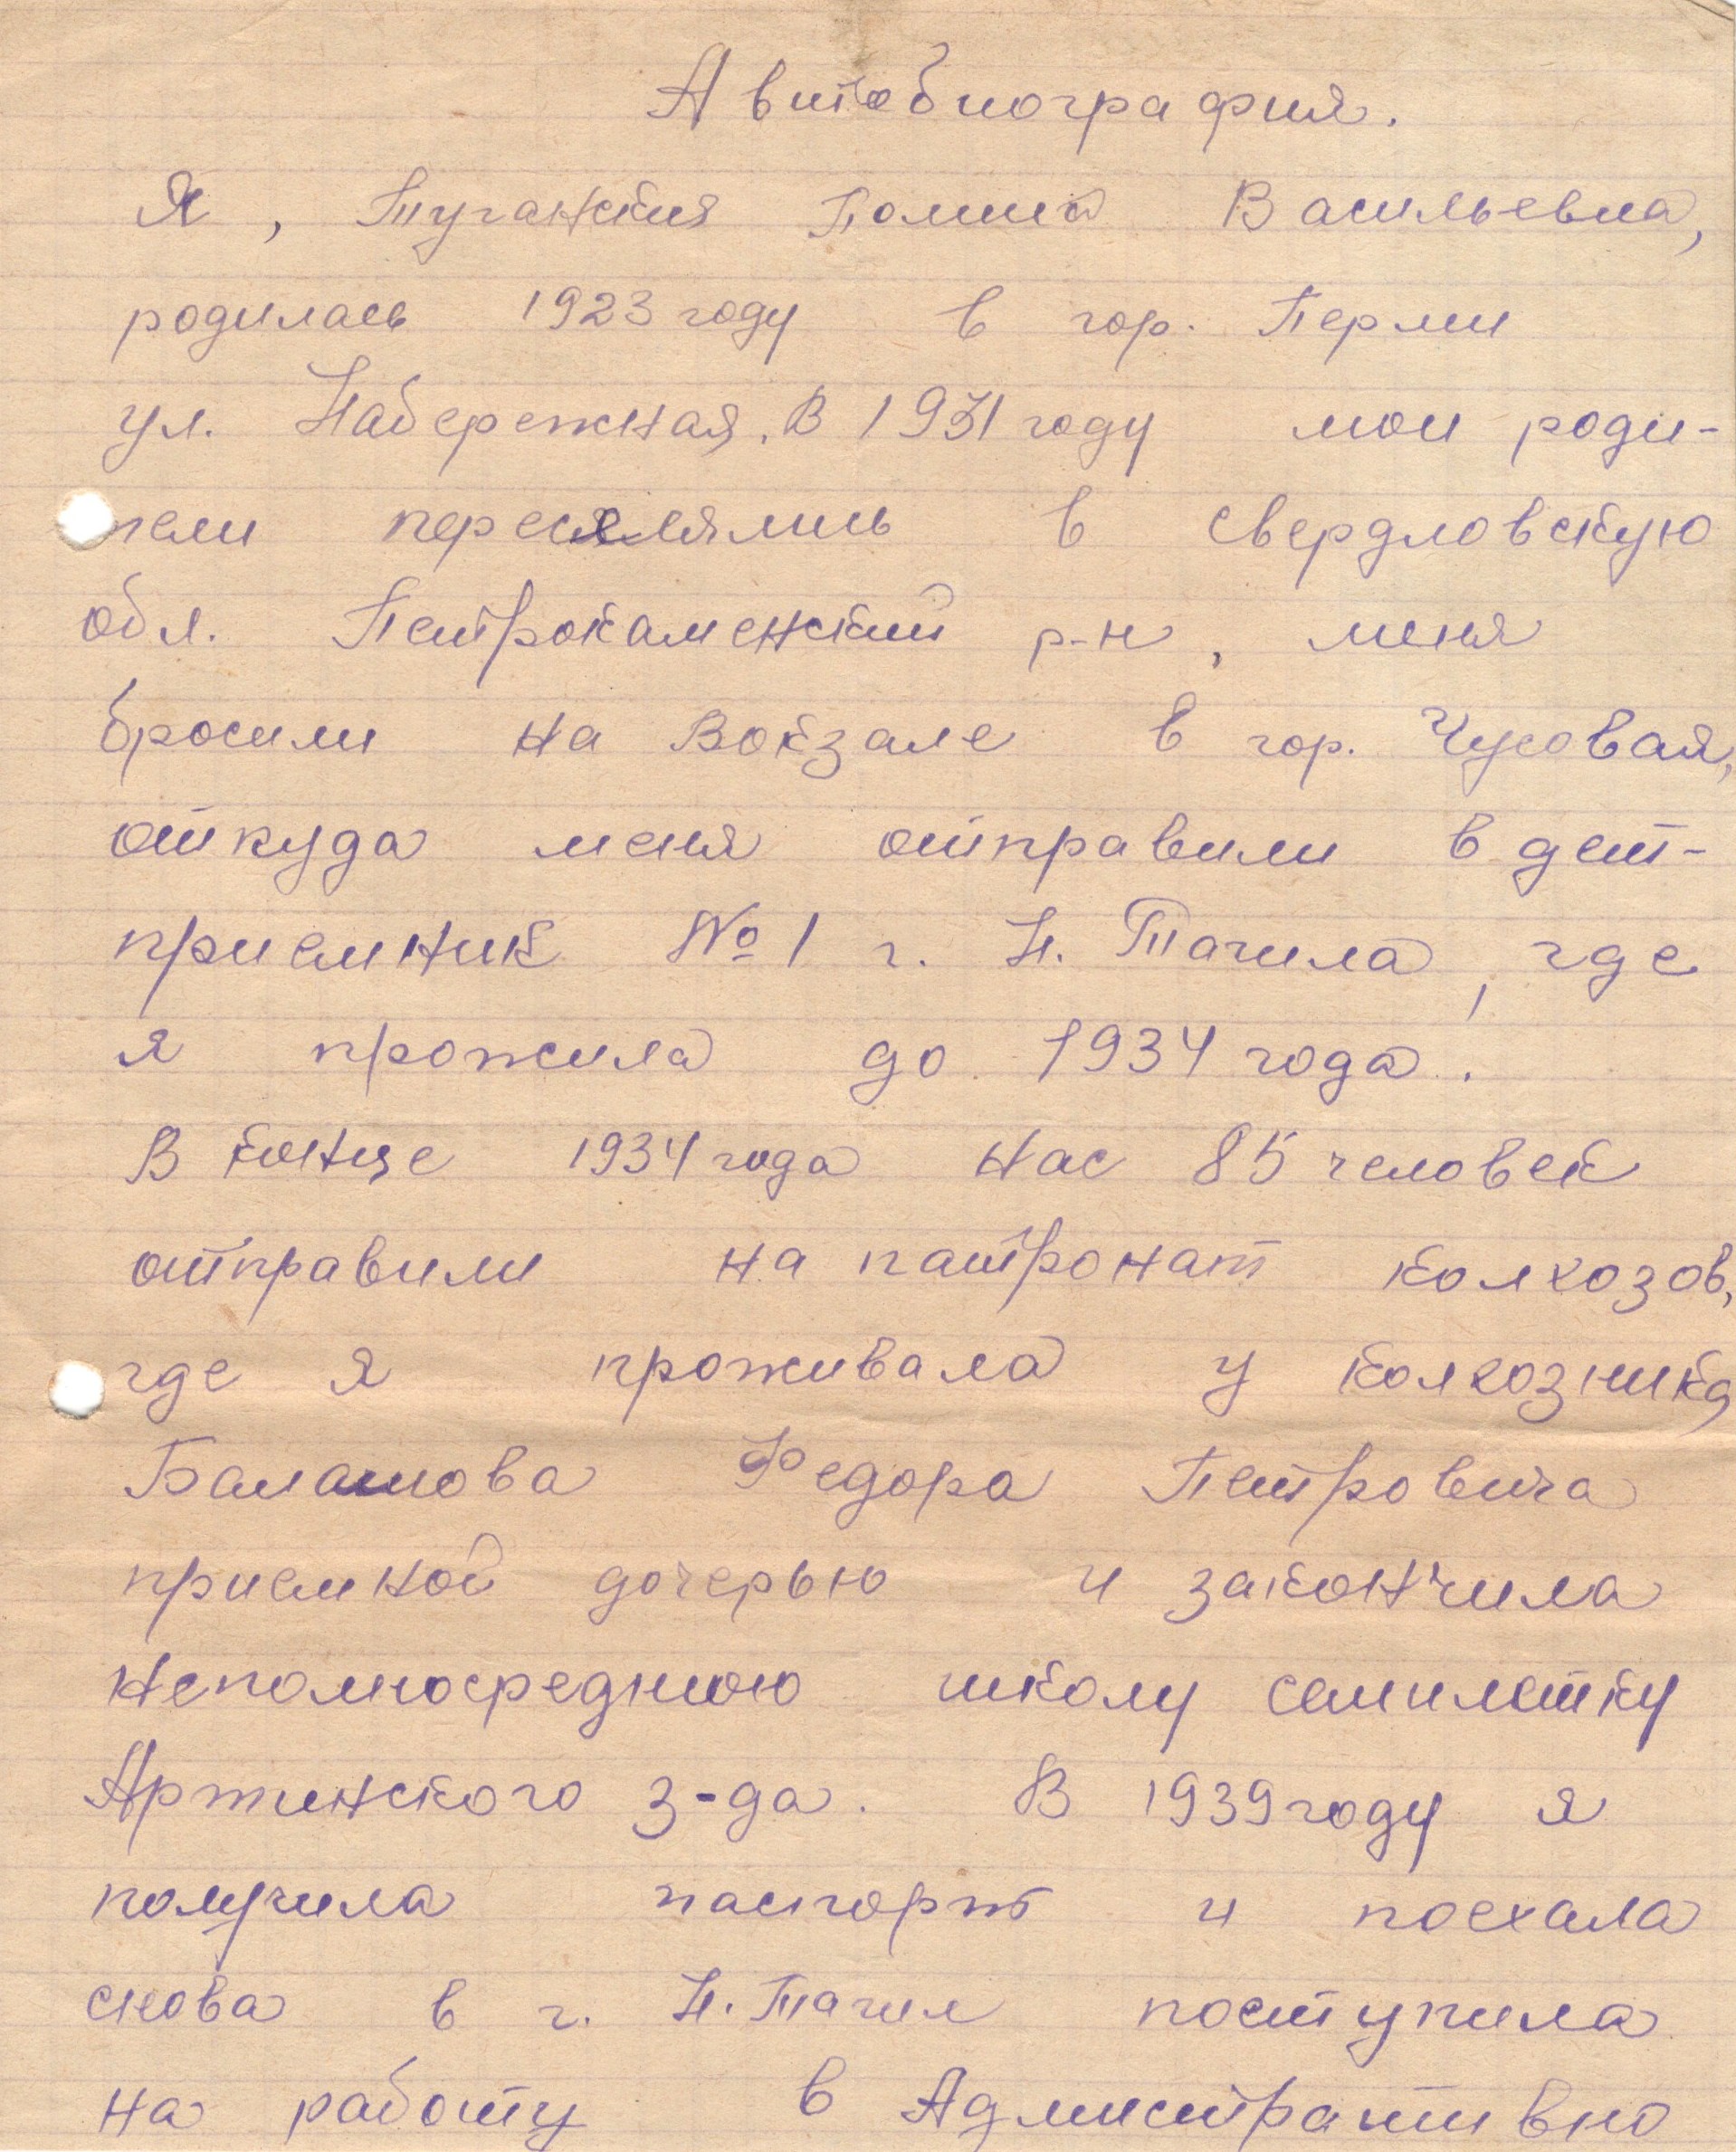 Автобиография.
Я, Туганская Полина Васильевна,
родилась 1923 году в гор. Перми
ул. Набережная. В 1931 году мои роди-
тели переселялись в свердловскую
обл. Петрокаменский р-н, меня
бросили на Вокзале в гор. Чусовая,
откуда меня отправили в дет-
приемник № 1 г. Н. Тагила, где
я прожила до 1934 года.
В конце 1934 года нас 85 человек
отправили на патронат колхозов,
где я проживала у колхозника
Балашова Федора Петровича
приемной дочерью и закончила
неполносреднюю школу семилетку
Артинского з-да. В 1939 году я
получила паспорт и поехала
снова в г. Н. Тагил поступила
на работу в Адмистративно